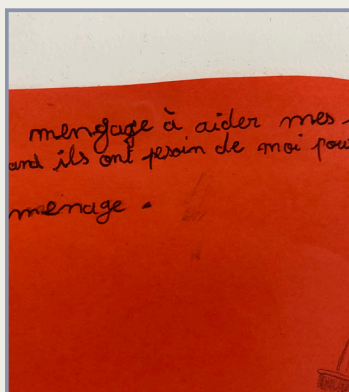 mengage à aider mes
and ils ont pesoin de moi pou
menage.